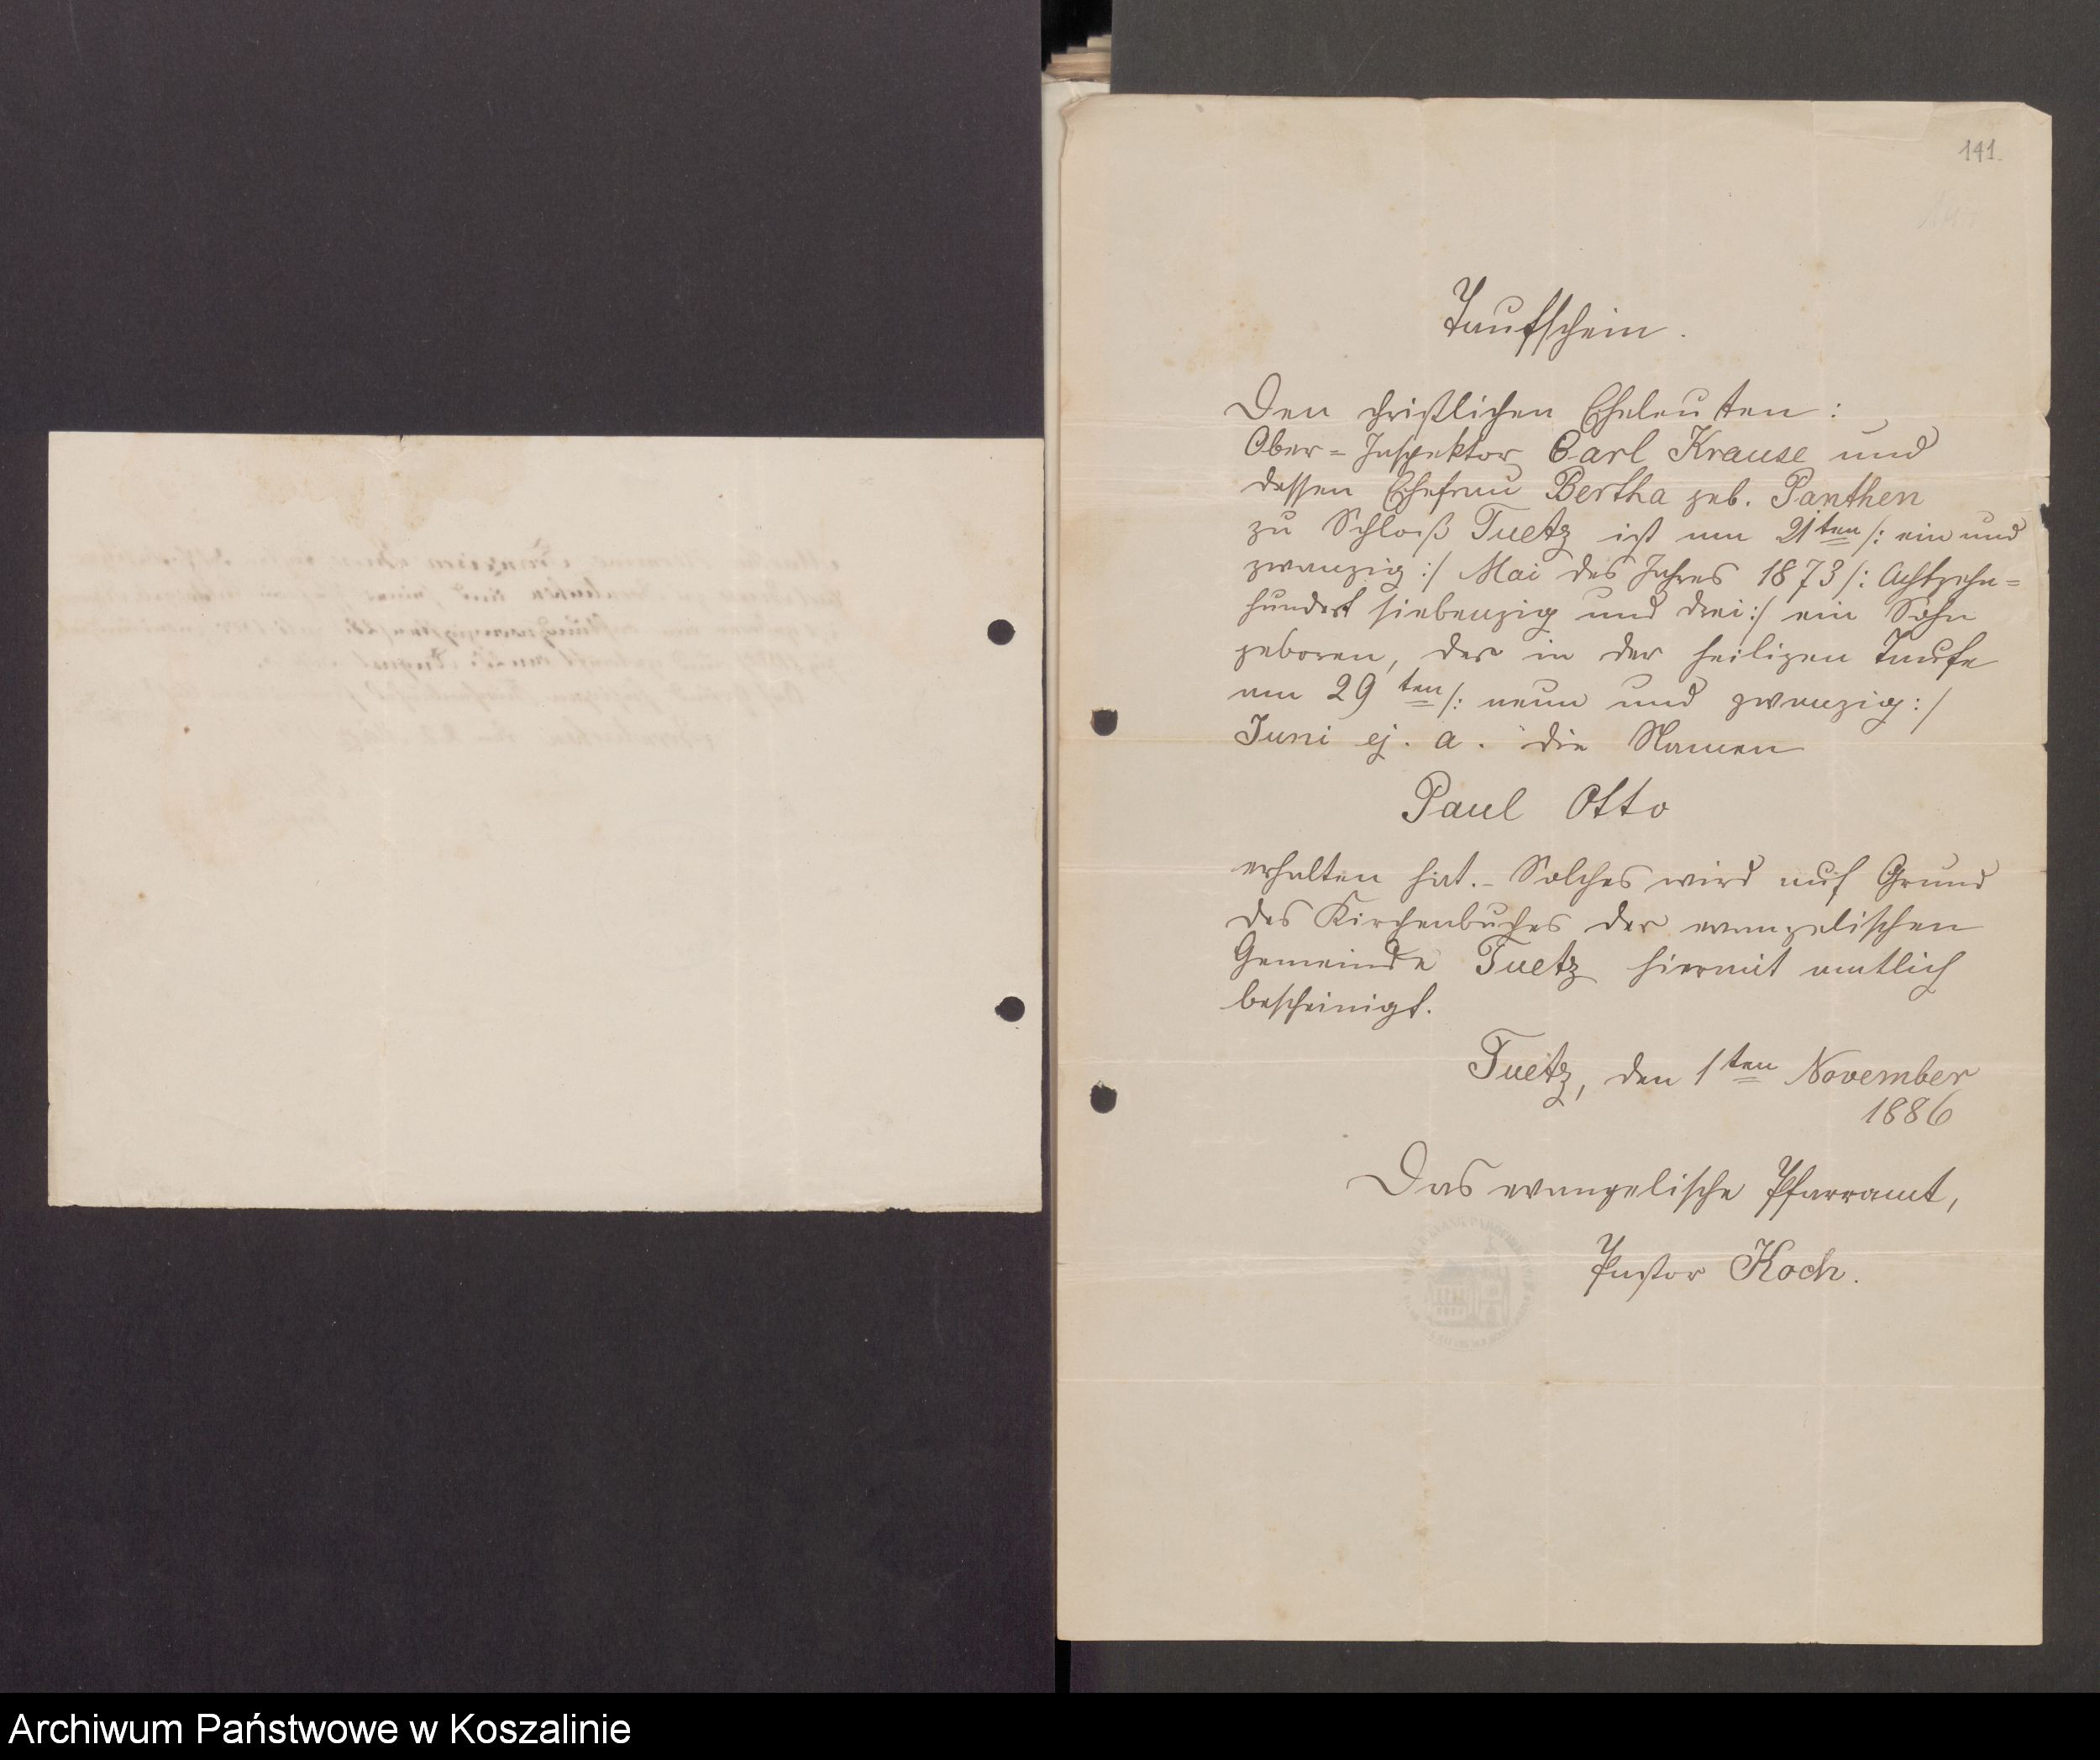 141.
Taufschein.
Den christlichen Eheleuten:
Ober-Inspektor Carl Krause und
dessen Ehefrau Bertha geb. Panthen
zu Schloß Tuetz ist am 21ten /: ein und
zwanzig :/ Mai des Jahres 1873 /: Achtzehn=
hundert siebenzig und drei :/ ein Sohn
geboren, der in der heiligen Taufe
am 29ten /: neun und zwanzig :/
Juni ej. a. die Namen
Paul Otto
erhalten hat. - Solches wird auf Grund
des Kirchenbuches der evangelischen
Gemeinde Tuetz hiermit amtlich
bescheinigt.
Tuetz, den 1ten November
1886
Das evangelische Pfarramt,
Pastor Koch.
Archiwum Państwowe w Koszalinie